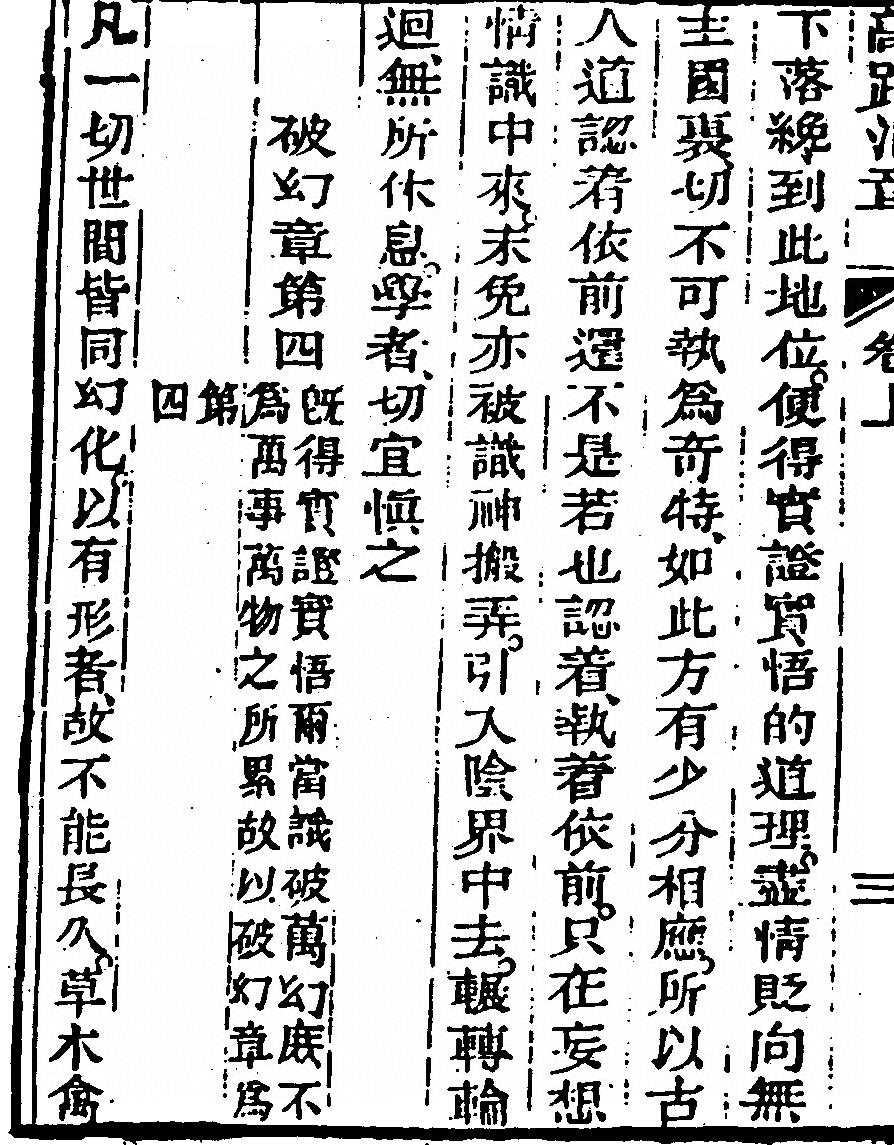 卷上
三
下落纔到此地位便得實證實悟的道理盡情貶向無
主國裏切不可執爲奇特如此方有少分相應所以古
人道認着依前還不是若也認着執着依前只在妄想
情識中來未免亦被識神搬弄引入陰界中去輾轉輪
迴無所休息學者切宜慎之
破幻章第四
既得實證實悟爾當識破萬幻庶不
爲萬事萬物之所累故以破幻章爲
第
四
凡一切世間皆同幻化以有形者故不能長久草木禽